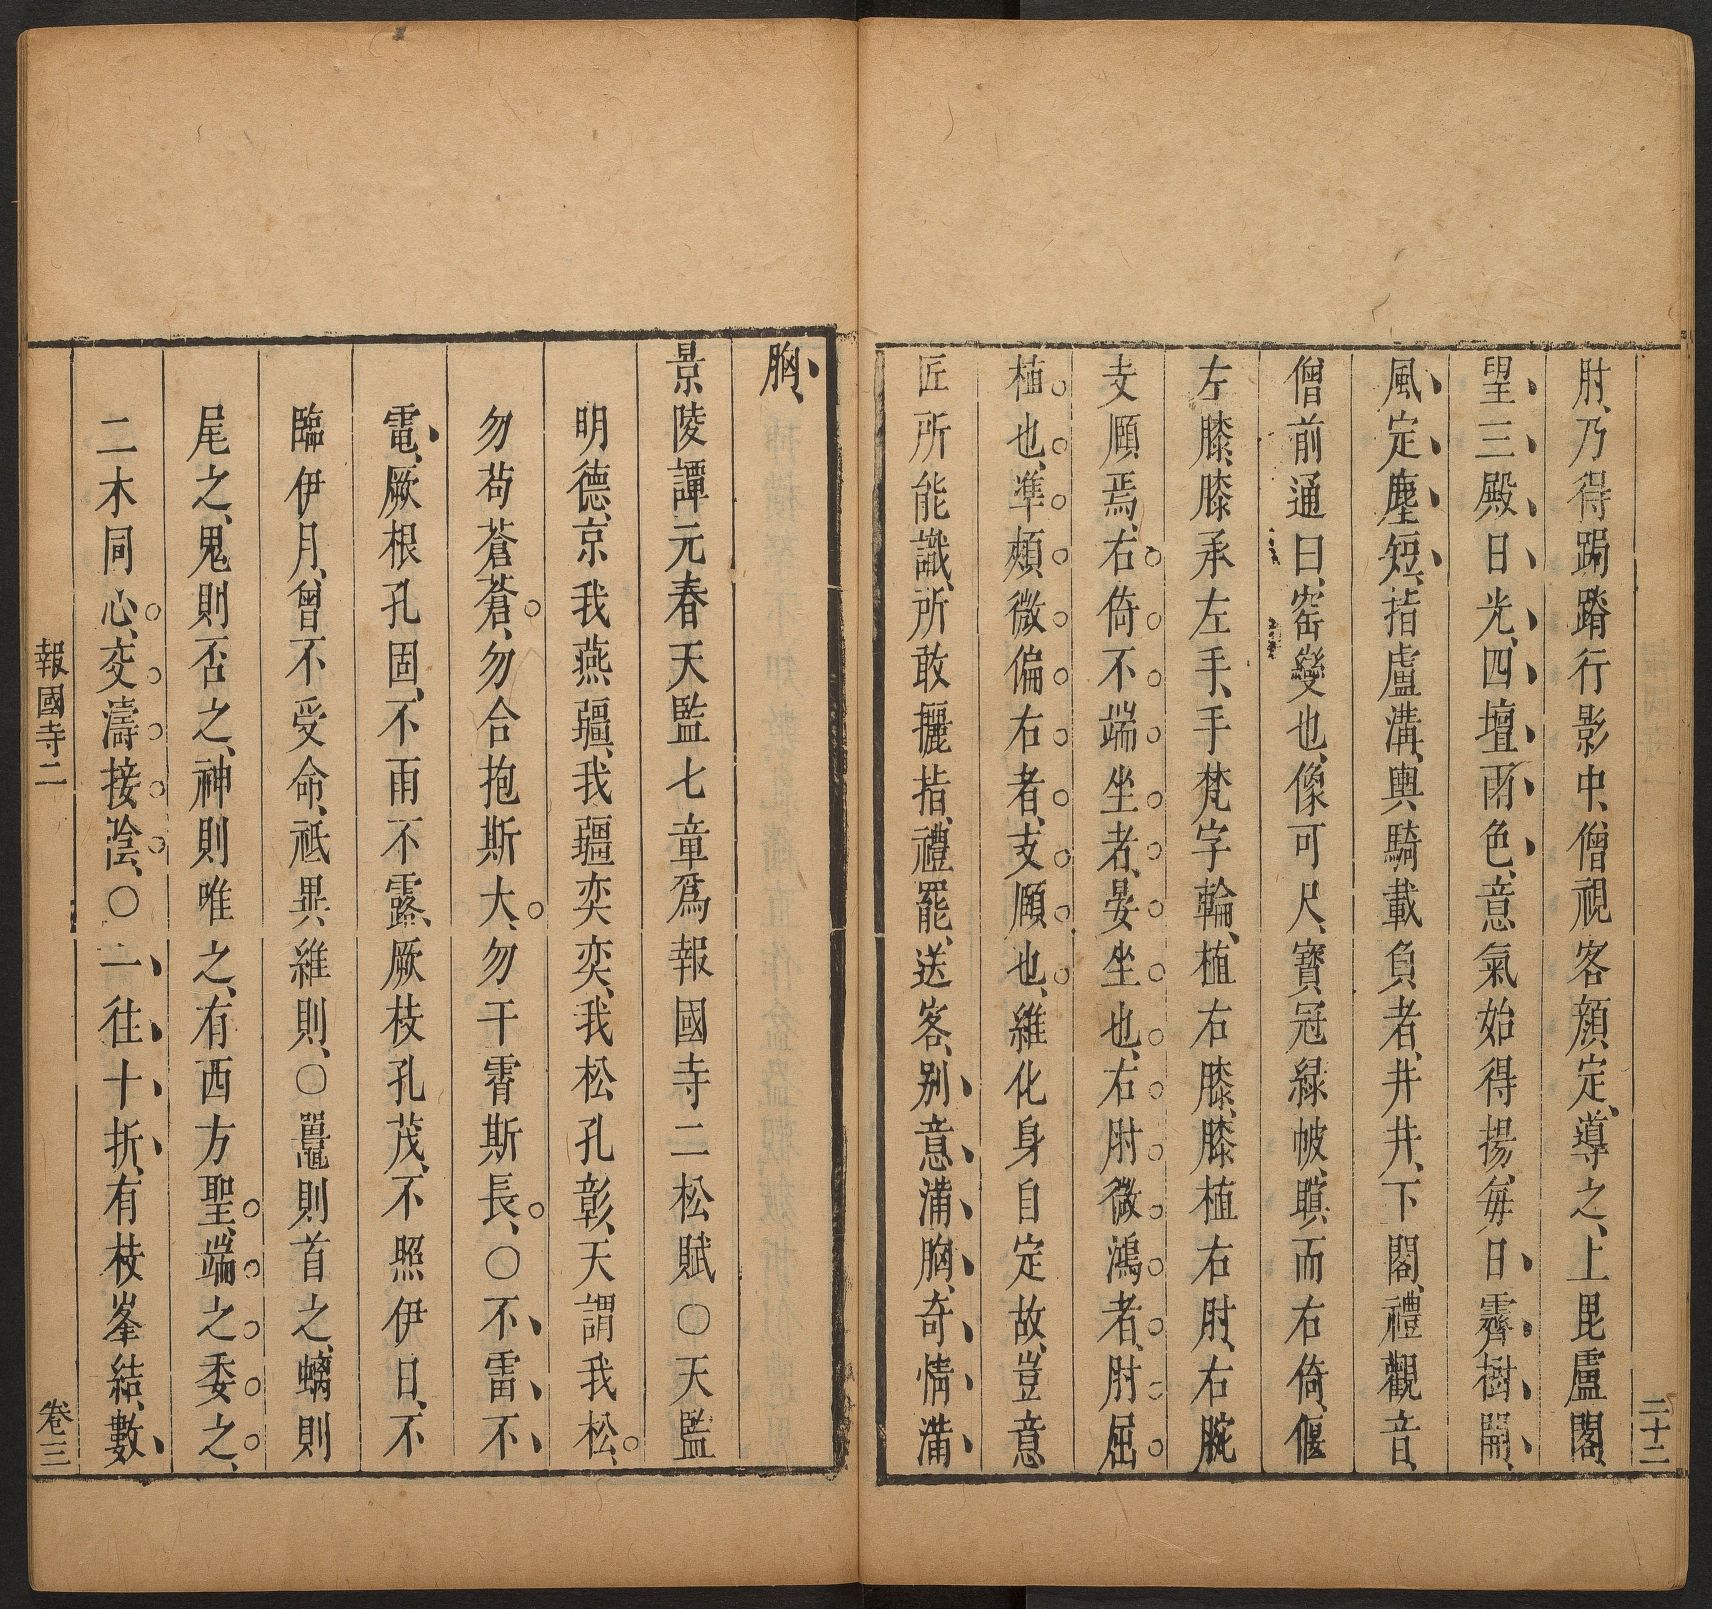 二十二
肘、乃得跼蹐行影中、僧視客顏定、導之、上毘盧閣、
望三殿日光、四壇雨色、意氣始得揚、每日霽樹開、
風定塵短、指盧溝、輿騎載負者、井井、下閣、禮觀音、
僧前通曰、窑變也、像可尺、寶冠綠帔、瞑而右倚、偃
左膝、膝承左手、手梵字輪、植右膝、膝植右肘、右腕
支頤焉、右倚不端坐者、晏坐也、右肘微鴻者、肘屈
植也、準頰微偏右者、支頤也、維化身自定故、豈意
匠所能識、所敢攦指、禮罷、送客、別意滿胸、奇情滿
胸、
景陵譚元春天監七童爲報國寺二松賦○天監
明德、京我燕疆、我疆奕奕、我松孔彰、天謂我松、
勿苟蒼蒼、勿合抱斯大、勿干霄斯長、○不雷不
電、厥根孔固、不雨不露、厥枝孔茂、不照伊日、不
臨伊月、曾不受命、祗異維則、○鼉則首之、螭則
尾之、鬼則否之、神則唯之、有西方聖、端之委之、
二木同心、交濤接陰、○一往十折、有枝峯結、數
報國寺二
卷三